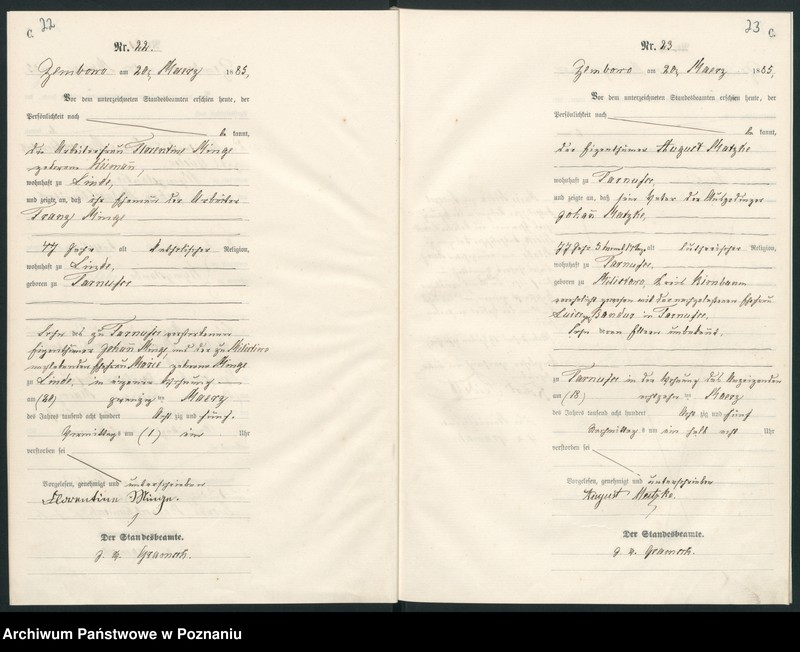 C. 22
Nr. 22.
Zembowo am 20. Maerz 1885,
Vor dem unterzeichneten Standesbeamten erschien heute, der
Persönlichkeit nach
be kannt,
die Arbeiterfrau Florentine Minge
geborene
wohnhaft zu Linde,
und zeigte an, daß ihr Ehemann der Arbeiter
Franz Minge
47 Jahr alt katholischer Religion,
wohnhaft zu Linde,
geboren zu Tarnufee
Sohn des zu Tarnufee verstorbenen
Eigenthümer Johann Minge, und der zu
Ehefrau Marie geborene Minge
zu Linde, in eigener Wohnung
am (20) zwanzig ten Maerz
des Jahres tausend acht hundert Acht zig und fünf.
Vormittags um (1) ein Uhr
verstorben sei
Vorgelesen, genehmigt und unterschrieben
Florentine Minge.
Der Standesbeamte.
J. V.
23 C.
Nr. 23
Zembowo am 20. Maerz 1885,
Vor dem unterzeichneten Standesbeamten erschien heute, der
Persönlichkeit nach
be kannt,
der Eigenthümer August Matzke
wohnhaft zu Tarnufee,
und zeigte an, daß sein Vater der Altsitzer
Johann Matzke,
77 Jahr alt lutherischer Religion,
wohnhaft zu Tarnufee,
geboren zu Kreis Birnbaum
verehelicht gewesen mit der Ehefrau
Luise in Tarnufee,
Sohn von Eltern unbekannt.
zu Tarnufee in der Wohnung des Anzeigenden
am (18) achtzehn ten Maerz
des Jahres tausend acht hundert Acht zig und fünf
Nachmittags um ein halb acht Uhr
verstorben sei
Vorgelesen, genehmigt und unterschrieben
August Matzke.
Der Standesbeamte.
J. V.
Archiwum Państwowe w Poznaniu